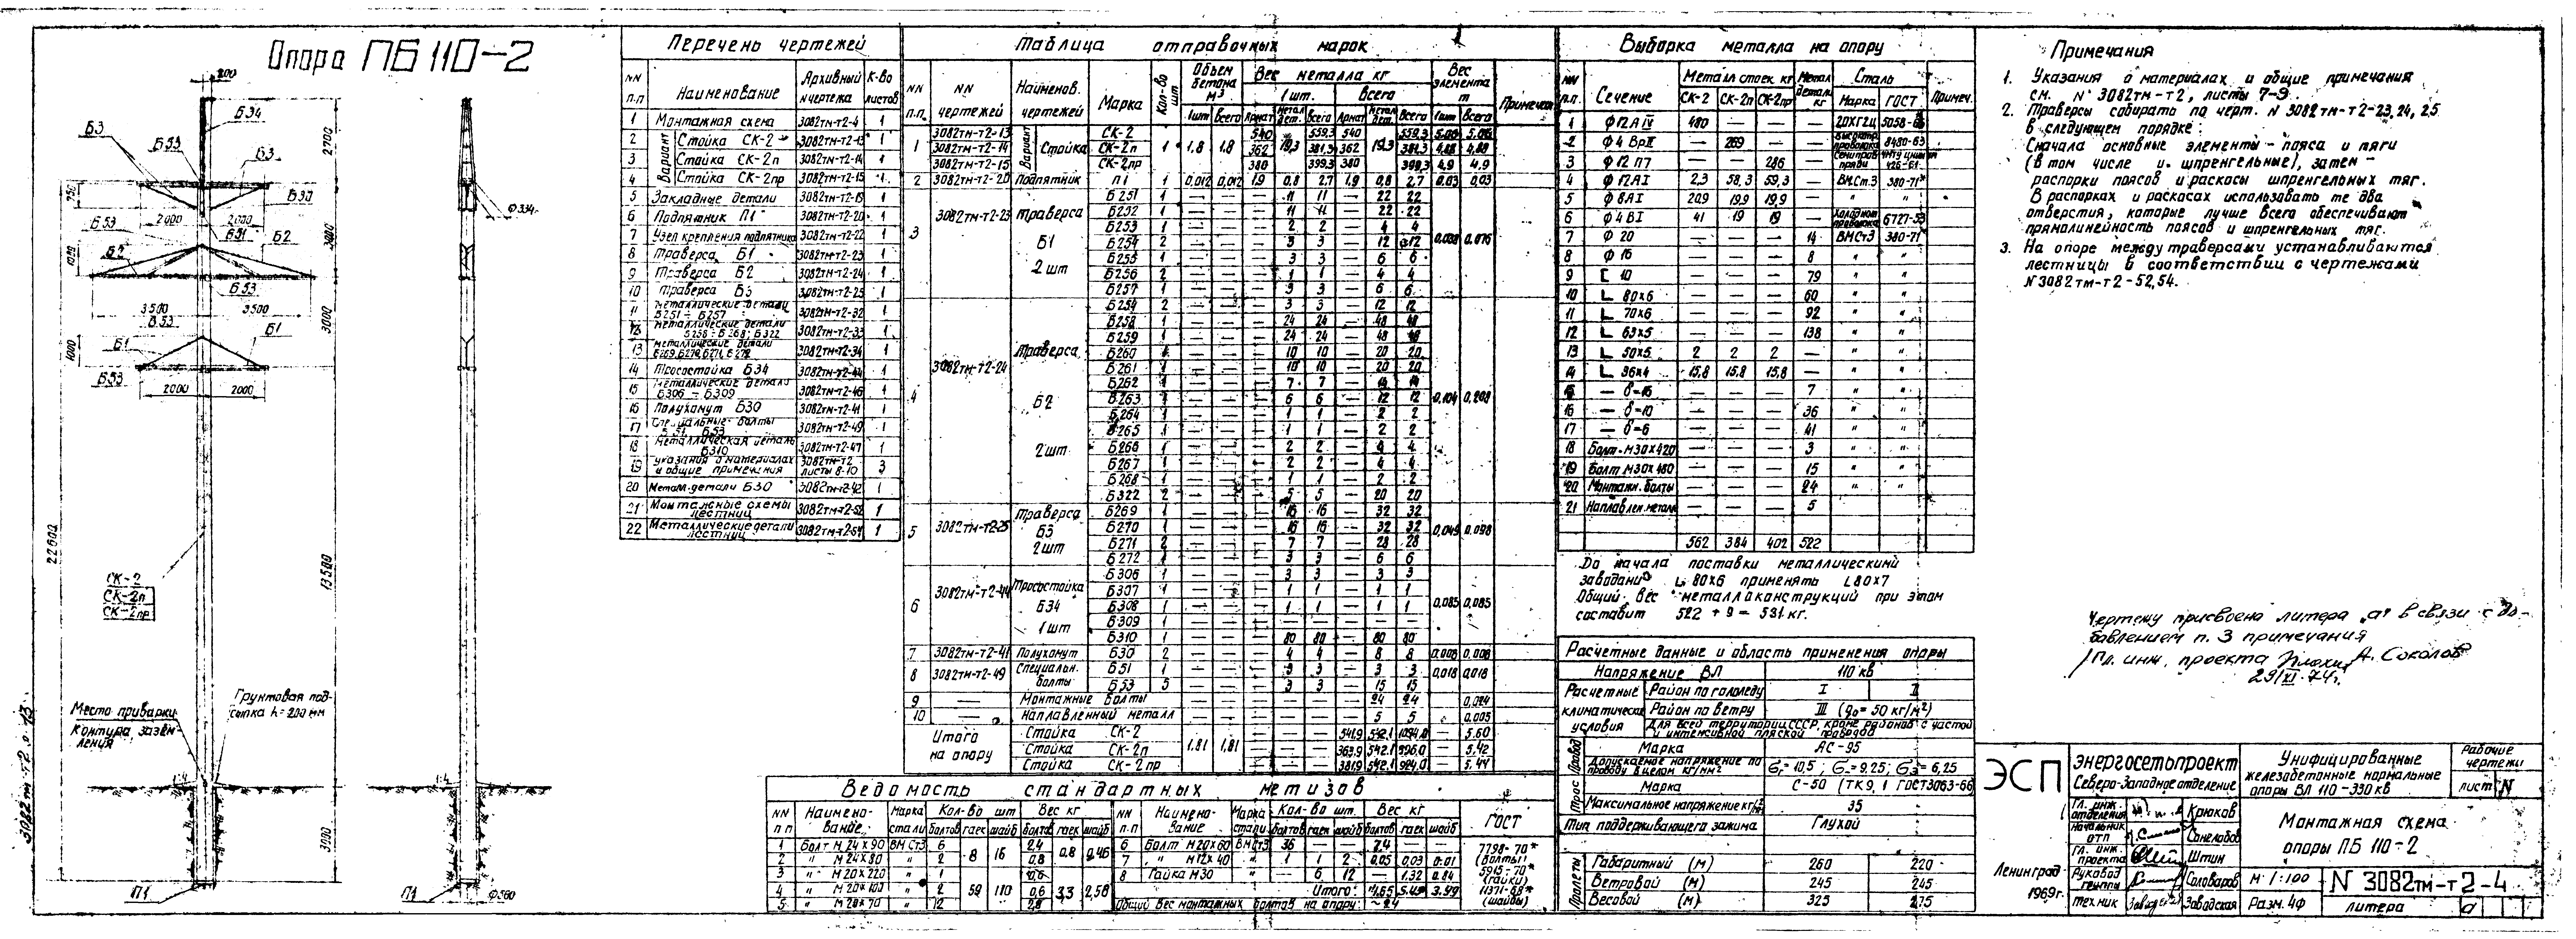 Опора ПБ 110-2
200
Б3
Б34
Б53
Б3
2700
Б30
250
Б53
2000
2000
Б51
Б2
Б2
3000
Б53
3500
3500
Б53
Б1
3000
1000
Б1
Б53
2000
2000
22600
13500
СК-2
СК-2п
СК-2пр
Место приварки
контура зазем-
ления
Грунтовая под-
сыпка h=200 мм
1:4
3000
П1
Ф334
1:4
П1
Ф560
Перечень чертежей
NN п.п Наименование Архивный N чертежа К-во листов
1 Монтажная схема 3082тм-т2-4 1
Вариант
2 Стойка СК-2 3082тм-т2-13 1
3 Стойка СК-2п 3082тм-т2-14 1
4 Стойка СК-2пр 3082тм-т2-15 1
5 Закладные детали 3082тм-т2-19 1
6 Подпятник П1 3082тм-т2-20 1
7 Узел крепления подпятника 3082тм-т2-22 1
8 Траверса Б1 3082тм-т2-23 1
9 Траверса Б2 3082тм-т2-24 1
10 Траверса Б3 3082тм-т2-25 1
11 Металлические детали Б251÷Б257 3082тм-т2-32 1
12 Металлические детали Б258÷Б268; Б322 3082тм-т2-33 1
13 Металлические детали Б269, Б270, Б271, Б272 3082тм-т2-34 1
14 Тросостойка Б34 3082тм-т2-44 1
15 Металлические детали Б306÷Б309 3082тм-т2-46 1
16 Полухомут Б30 3082тм-т2-41 1
17 Специальные болты Б51 Б53 3082тм-т2-49 1
18 Металлическая деталь Б310 3082тм-т2-47 1
19 Указания о материалах и общие примечания 3082тм-т2 листы 8-10 3
20 Метал. детали Б30 3082тм-т2-42 1
21 Монтажные схемы лестниц 3082тм-т2-52 1
22 Металлические детали лестниц 3082тм-т2-54 1
Таблица отправочных марок
NN п.п. NN чертежей Наименов. чертежей Марка Кол-во шт Объем бетона м³ Вес металла кг Вес элемента т Примечан
1шт Всего 1 шт. Всего 1шт Всего
Арнат Метал дет. Всего Арнат Метал дет. Всего
1 Вариант Стойка 1 1,8 1,8 19,3 19,3
3082тм-т2-13 СК-2 540 559,3 540 559,3
3082тм-т2-14 СК-2п 362 381,3 362 381,3
3082тм-т2-15 СК-2пр 380 399.3 380 399,3 4.9 4.9
2 3082тм-т2-20 Подпятник П1 1 0,012 0,012 1,9 0,8 2,7 1,9 0,8 2,7 0.03 0,03
3 3082тм-т2-23 Траверса Б1 2 шт
Б251 1 — — — 11 11 — 22 22
Б252 1 — — — 11 11 — 22 22
Б253 1 — — — 2 2 — 4 4
Б254 2 — — — 3 3 — 12 12
Б255 1 — — — 3 3 — 6 6
Б256 2 — — — 1 1 — 4 4
Б257 1 — — — 3 3 — 6 6
4 3082тм-т2-24 Траверса Б2 2шт 0,104 0,208
Б254 2 — — — 3 3 — 12 12
Б258 1 — — — 24 24 — 48 48
Б259 1 — — — 24 24 — 48 48
Б260 1 — — — 10 10 — 20 20
Б261 1 — — — 10 10 — 20 20
Б262 1 — — — 7 7 — 14 14
Б263 1 — — — 6 6 — 12 12
Б264 1 — — — 1 1 — 2 2
Б265 1 — — — 1 1 — 2 2
Б266 1 — — — 2 2 — 4 4
Б267 1 — — — 2 2 — 4 4
Б268 1 — — — 1 1 — 2 2
Б322 2 — — — 5 5 — 20 20
5 3082тм-т2-25 Траверса Б3 2шт 0,049 0.098
Б269 1 — — — 16 16 — 32 32
Б270 1 — — — 16 16 — 32 32
Б271 2 — — — 7 7 — 28 28
Б272 1 — — — 3 3 — 6 6
6 3082тм-т2-44 Тросостойка Б34 1 шт 0,085 0,085
Б306 1 — — — 3 3 — 3 3
Б307 1 — — — 1 1 — 1 1
Б308 1 — — — 1 1 — 1 1
Б309 1
Б310 1 — — — 80 80 — 80 80
7 3082тм-т2-41 Полухомут Б30 2 — — — 4 4 — 8 8 0.008 0,008
8 3082тм-т2-49 Специальн. болты 0,018 0,018
Б51 1 — — — 3 3 — 3 3
Б53 5 — — — 3 3 — 15 15
9 — Монтажные болты — — — — — — 24 24 0,024
10 — Наплавленный металл — — — — — — 5 5 — 0.005
Итого на опору 1,81 1,81
Стойка СК-2 — — — 541,9 542.1 — 5.60
Стойка СК-2п — — — 363,9 542.1 — 5,42
Стойка СК-2пр — — — 381,9 542.1 924.0 — 5.44
Ведомость стандартных метизов
NN п п Наимено-вание Марка стали Кол-во шт Вес кг NN п.п. Наимено-вание Марка стали Кол-во шт. Вес кг ГОСТ
болтов гаек шайб болтов гаек шайб болтов гаек шайб болтов гаек шайб
1 Болт М 24×90 ВМСт3 6 8 16 2,4 0.8 0,46 6 Болт М20×60 ВМСт3 36 — — 7.4 — —
2 " М 24×80 " 2 0,8 7 " М12×40 " 1 1 2 0,05 0,03 0.01
3 " М 20×220 " 1 59 110 0,6 3,3 2,56 8 Гайка М30 — 6 12 — 1.32 0.84
4 " М 20×100 " 2 0,6 Итого:
5 " М 20×70 " 12 2,8 Общий вес монтажных болтов на опору: ~24
7798-70*
(болты)
5915-70*
(гайки)
11371-68*
(шайбы)
Выборка металла на опору
NN п.п. Сечение Металл стоек кг Метал детали кг Сталь Примеч.
СК-2 СК-2п СК-2пр Марка ГОСТ
1 Ф12АIV 480 — — — 20ХГ2Ц
2 Ф4ВрII — 269 — — 8480-63
3 Ф12 П7 — — 286 —
4 Ф12АI 2,3 58,3 59,3 — ВМСт.3 380-71*
5 Ф8АI 20,9 19,9 19,9 — " "
6 Ф4ВI 41 19 19 — 6727-53
7 Ф 20 — — — 14 ВМСт3 380-71*
8 Ф 16 — — — 8 " "
9 [ 10 — — — 79 " "
10 L 80×6 — — — 60 " "
11 L 70×6 — — — 92 " "
12 L 63×5 — — — 138 " "
13 L 50×5 2 2 2 — " "
14 L 36×4 15,8 15,8 15,8 — " "
15 — δ=16 — — — 7 " "
16 — δ=10 — — — 36 " "
17 — δ=6 — — — 41 " "
18 Болт М30×420 — — — 3 " "
19 Болт М30×480 — — — 15 " "
20 Монтажн. болты — — — 24 " "
21 Наплавлен. металл — — — 5
562 384 402 522
До начала поставки металлическими
заводами L 80×6 применять L 80×7
Общий вес металлоконструкций при этом
составит 522 + 9 = 531 кг.
Расчетные данные и область применения опоры
Напряжение ВЛ 110 кв
Расчетные климатические условия
Район по гололеду I II
Район по ветру III (g₀ = 50 кг/м²)
Для всей территории СССР, кроме районов с частой и интенсивной пляской проводов
Провод
Марка АС-95
Допускаемое напряжение по проводу в целом кг/мм² бг=10,5; б=9,25; бэ=6,25
Трос
Марка С-50 (ТК9,1 ГОСТ3063-66
Максимальное напряжение кг/мм² 35
Тип поддерживающего зажима Глухой
Пролеты
Габаритный (м) 260 220
Ветровой (м) 245 245
Весовой (м) 325 275
Примечания
1. Указания о материалах и общие примечания
см. N° 3082тм-т2, листы 7-9.
2. Траверсы собирать по черт. N 3082тм-т2-23, 24, 25
в следующем порядке:
Сначала основные элементы - пояса и тяги
(в том числе и шпренгельные), затем -
распорки поясов и раскосы шпренгельных тяг.
В распорках и раскосах использовать те два
отверстия, которые лучше всего обеспечивают
прямолинейность поясов и шпренгельных тяг.
3. На опоре между траверсами устанавливаются
лестницы в соответствии с чертежами
N 3082тм-т2-52,54.
Чертежу присвоена литера „а" в связи с до-
бавлением п. 3 примечания
Гл. инж. проекта А. Соколов
29/XI-74г.
ЭСП
Энергосетьпроект
Северо-Западное отделение
Унифицированные
железобетонные нормальные
опоры ВЛ 110-330 кв
Рабочие
чертежи
лист N
Гл. инж. отделения Крюков
Начальник ОТП
Гл. инж. проекта Штин
Руковод группы Соловаров
техник Заводская
Монтажная схема
опоры ПБ 110-2
Ленинград
1969г.
М 1:100
N 3082тм-т2-4
Разм. 4ф
литера а
3082тм-т2